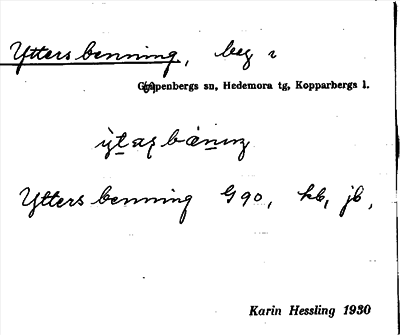 Yttersbenning, beg
Garpenbergs sn, Hedemora tg, Kopparbergs l.
Yttersbenning G 90, kb, jb,
Karin Hessling 1930